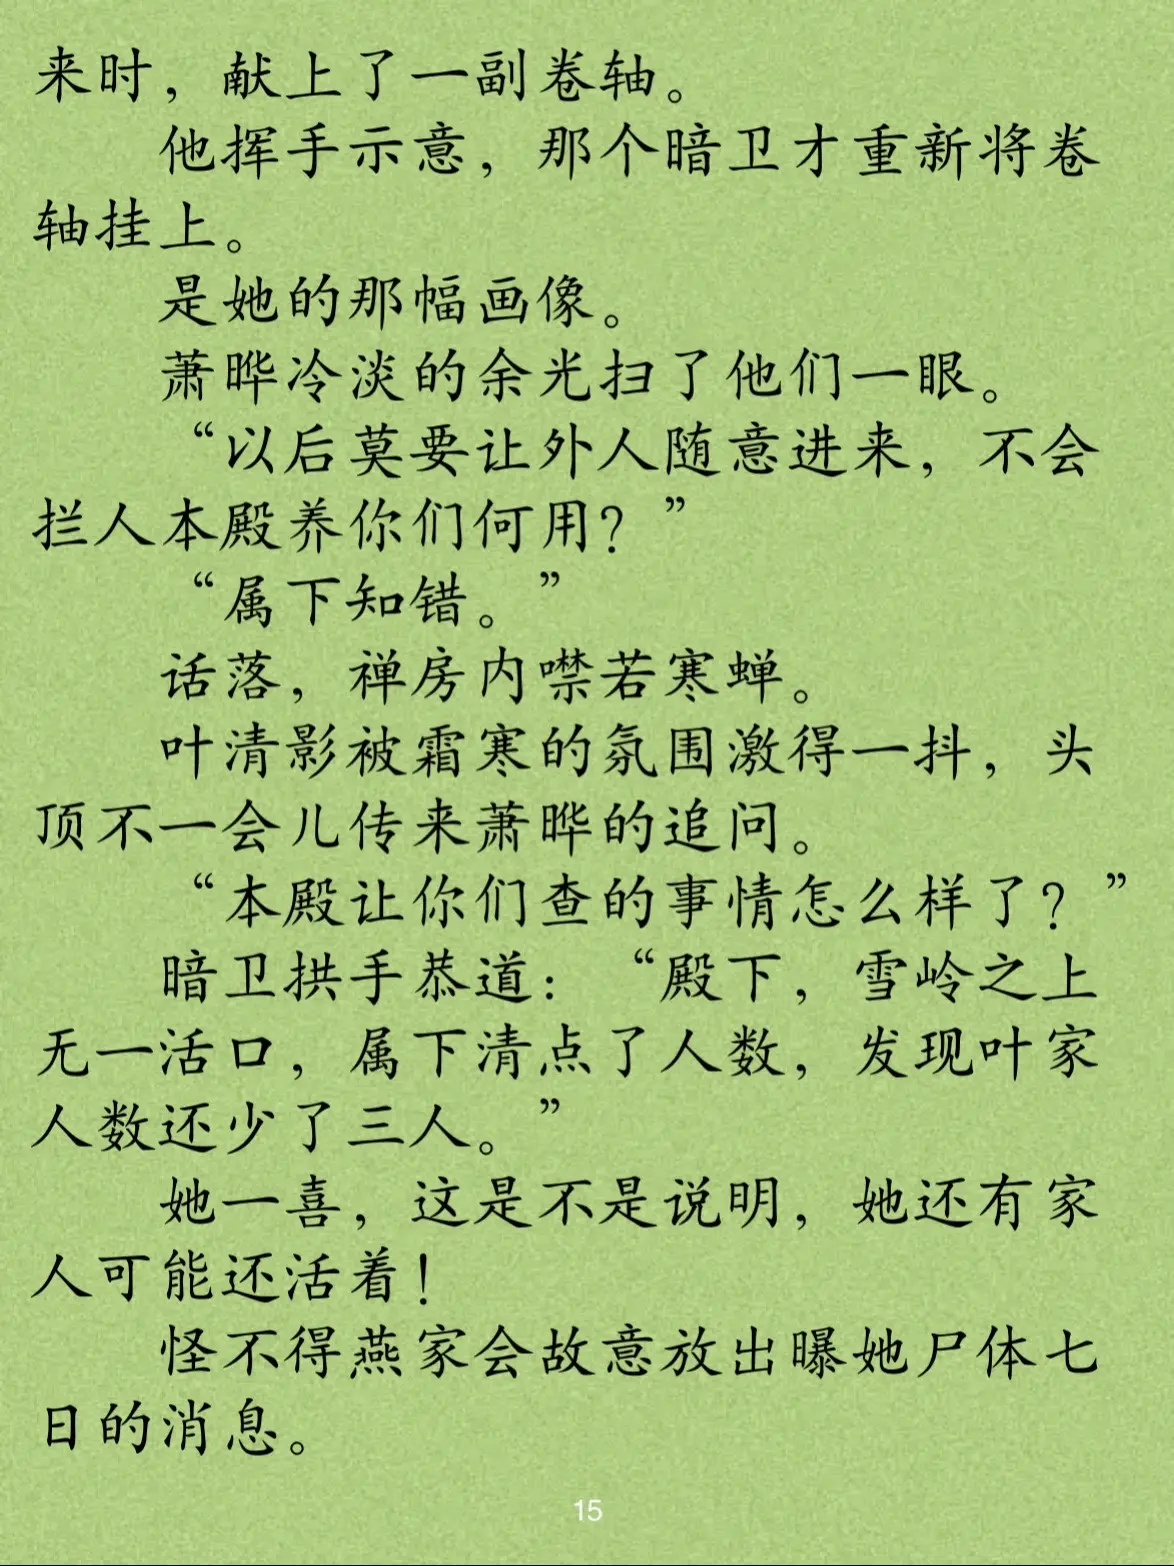 来时，献上了一副卷轴。
他挥手示意，那个暗卫才重新将卷
轴挂上。
是她的那幅画像。
萧晔冷淡的余光扫了他们一眼。
“以后莫要让外人随意进来，不会
拦人本殿养你们何用？”
“属下知错。”
话落，禅房内噤若寒蝉。
叶清影被霜寒的氛围激得一抖，头
顶不一会儿传来萧晔的追问。
“本殿让你们查的事情怎么样了？”
暗卫拱手恭道：“殿下，雪岭之上
无一活口，属下清点了人数，发现叶家
人数还少了三人。”
她一喜，这是不是说明，她还有家
人可能还活着！
怪不得燕家会故意放出曝她尸体七
日的消息。
15